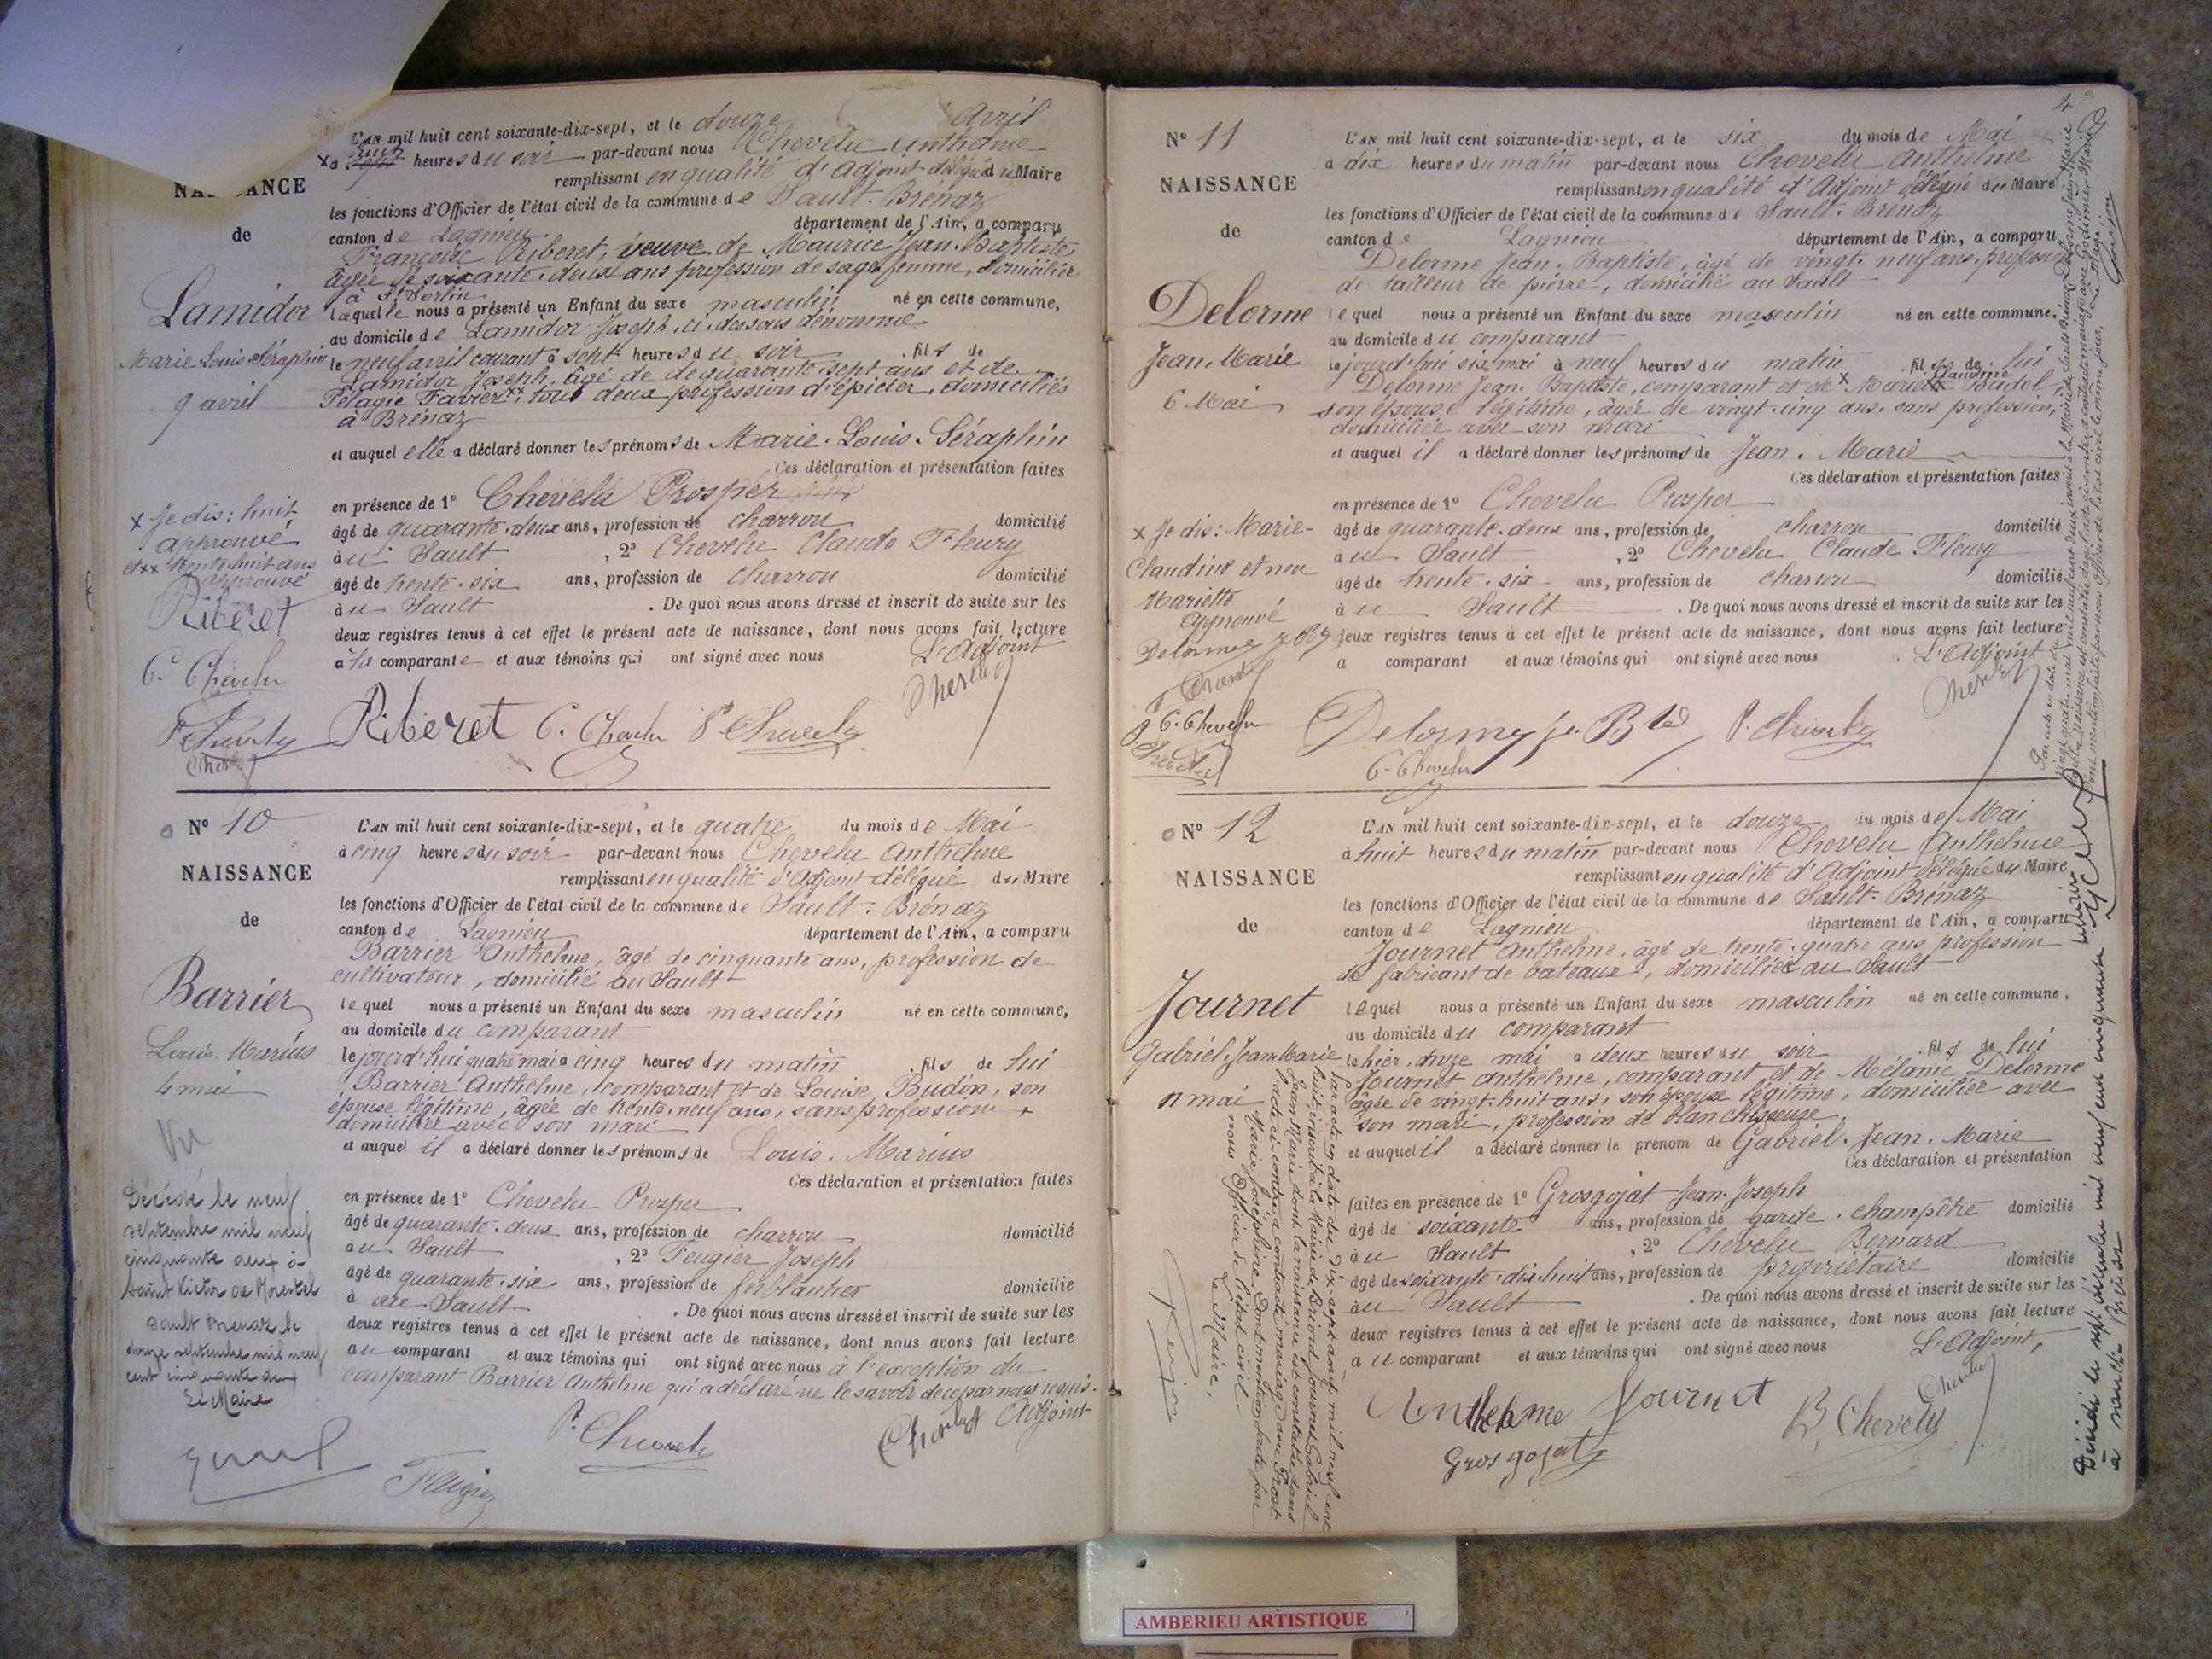 L'AN mil huit cent soixante-dix-sept, et le douze Avril
x a heures du soir par-devant nous Chevelu Anthelme
remplissant en qualité d'Adjoint délégué du Maire
NAISSANCE
les fonctions d'Officier de l'état civil de la commune de Sault-Brénaz
de
canton de Lagnieu département de l'Ain, a comparu
Françoise Riberet, veuve de Maurice Jean-Baptiste,
âgée de soixante-deux ans profession de sage femme, domiciliée
à St Sorlin
Lamidor
laquelle nous a présenté un Enfant du sexe masculin né en cette commune,
au domicile de Lamidor Joseph, ci-dessous dénommé
Marie Louis Séraphin
le neuf avril courant à sept heures du soir, fils de
Lamidor Joseph, âgé de quarante-sept ans et de
9 avril
Pélagie Favier xx, tous deux profession d'épicier, domiciliés
à Brénaz
et auquel elle a déclaré donner les prénoms de Marie-Louis-Séraphin
Ces déclaration et présentation faites
en présence de 1° Chevelu Prosper
x Je dis: huit
approuvé
et xx trente huit ans
approuvé
âgé de quarante-deux ans, profession de charron domicilié
au Sault, 2° Chevelu Claude Fleury
âgé de trente-six ans, profession de charron domicilié
au Sault. De quoi nous avons dressé et inscrit de suite sur les
deux registres tenus à cet effet le présent acte de naissance, dont nous avons fait lecture
à la comparante et aux témoins qui ont signé avec nous L'Adjoint
Riberet
C. Chevelu
P. Chevelu
Riberet C. Chevelu P. Chevelu Chevelu
N° 10
NAISSANCE
de
Barrier
Louis-Marius
4 mai
Vu
Décédé le neuf
septembre mil neuf
cinquante deux à
Saint Victor de Morestel
Sault Brenaz le
douze septembre mil neuf
cent cinquante deux
Le Maire
L'AN mil huit cent soixante-dix-sept, et le quatre du mois de Mai
à cinq heures du soir par-devant nous Chevelu Anthelme
remplissant en qualité d'Adjoint délégué du Maire
les fonctions d'Officier de l'état civil de la commune de Sault-Brénaz
canton de Lagnieu département de l'Ain, a comparu
Barrier Anthelme, âgé de cinquante ans, profession de
cultivateur, domicilié au Sault
lequel nous a présenté un Enfant du sexe masculin né en cette commune,
au domicile du comparant
le jourd'hui quatre mai à cinq heures du matin, fils de lui
Barrier Anthelme, comparant et de Louise Budin, son
épouse légitime, âgée de trente-neuf ans, sans profession
domiciliée avec son mari
et auquel il a déclaré donner les prénoms de Louis-Marius
Ces déclaration et présentation faites
en présence de 1° Chevelu Prosper
âgé de quarante-deux ans, profession de charron domicilié
au Sault, 2° Feugier Joseph
âgé de quarante-six ans, profession de ferblantier domicilié
à au Sault. De quoi nous avons dressé et inscrit de suite sur les
deux registres tenus à cet effet le présent acte de naissance, dont nous avons fait lecture
au comparant et aux témoins qui ont signé avec nous à l'exception du
comparant Barrier Anthelme qui a déclaré ne le savoir de ce par nous requis.
P. Chevelu Chevelu Adjoint
Feugier
4
N° 11
NAISSANCE
de
Delorme
Jean-Marie
6 Mai
x Je dis: Marie-
Claudine et non
Mariette
approuvé
C. Chevelu
L'AN mil huit cent soixante-dix-sept, et le six du mois de Mai
à dix heures du matin par-devant nous Chevelu Anthelme
remplissant en qualité d'Adjoint délégué du Maire
les fonctions d'Officier de l'état civil de la commune de Sault-Brénaz
canton de Lagnieu département de l'Ain, a comparu
Delorme Jean-Baptiste, âgé de vingt-neuf ans, profession
de tailleur de pierre, domicilié au Sault
lequel nous a présenté un Enfant du sexe masculin né en cette commune,
au domicile du comparant
le jourd'hui six mai à neuf heures du matin, fils de lui
Delorme Jean-Baptiste, comparant et de x Mariette Badel,
son épouse légitime, âgée de vingt-cinq ans, sans profession,
domiciliée avec son mari
et auquel il a déclaré donner les prénoms de Jean-Marie
Ces déclaration et présentation faites
en présence de 1° Chevelu Prosper
âgé de quarante-deux ans, profession de charron domicilié
au Sault, 2° Chevelu Claude Fleury
âgé de trente-six ans, profession de charron domicilié
à u Sault. De quoi nous avons dressé et inscrit de suite sur les
deux registres tenus à cet effet le présent acte de naissance, dont nous avons fait lecture
a comparant et aux témoins qui ont signé avec nous. L'Adjoint
Delorme P. Chevelu Chevelu
C. Chevelu
N° 12
NAISSANCE
de
Journet
Gabriel-Jean-Marie
11 mai
L'AN mil huit cent soixante-dix-sept, et le douze du mois de Mai
à huit heures du matin par-devant nous Chevelu Anthelme
remplissant en qualité d'Adjoint délégué du Maire
les fonctions d'Officier de l'état civil de la commune de Sault-Brénaz
canton de Lagnieu département de l'Ain, a comparu
Journet Anthelme, âgé de trente-quatre ans profession
de fabricant de bateaux, domicilié au Sault
lequel nous a présenté un Enfant du sexe masculin né en cette commune,
au domicile du comparant
le hier, onze mai à deux heures du soir, fils de lui
Journet Anthelme, comparant et de Mélanie Delorme
âgée de vingt-huit ans, son épouse légitime, domiciliée avec
son mari, profession de blanchisseuse
et auquel il a déclaré donner le prénom de Gabriel-Jean-Marie
Ces déclaration et présentation
faites en présence de 1° Grosgojat Jean-Joseph
âgé de soixante ans, profession de garde-champêtre domicilié
à u Sault, 2° Chevelu Bernard
âgé de soixante-dix-huit ans, profession de propriétaire domicilié
à u Sault. De quoi nous avons dressé et inscrit de suite sur les
deux registres tenus à cet effet le présent acte de naissance, dont nous avons fait lecture
au comparant et aux témoins qui ont signé avec nous L'Adjoint,
Anthelme Journet B. Chevelu Chevelu
Grosgojat
Par acte en date du dix-sept août mil neuf cent
huit, inscrit à la Mairie de Briord, Journet Gabriel
Jean Marie, dont la naissance est constatée dans
l'acte ci-contre a contracté mariage avec Prost
Marie Joséphine. Dont mention faite par
nous Officier de l'état civil.
Le Maire,
Décédé le sept décembre mil neuf cent cinquante
à Sault-Brénaz
AMBERIEU ARTISTIQUE